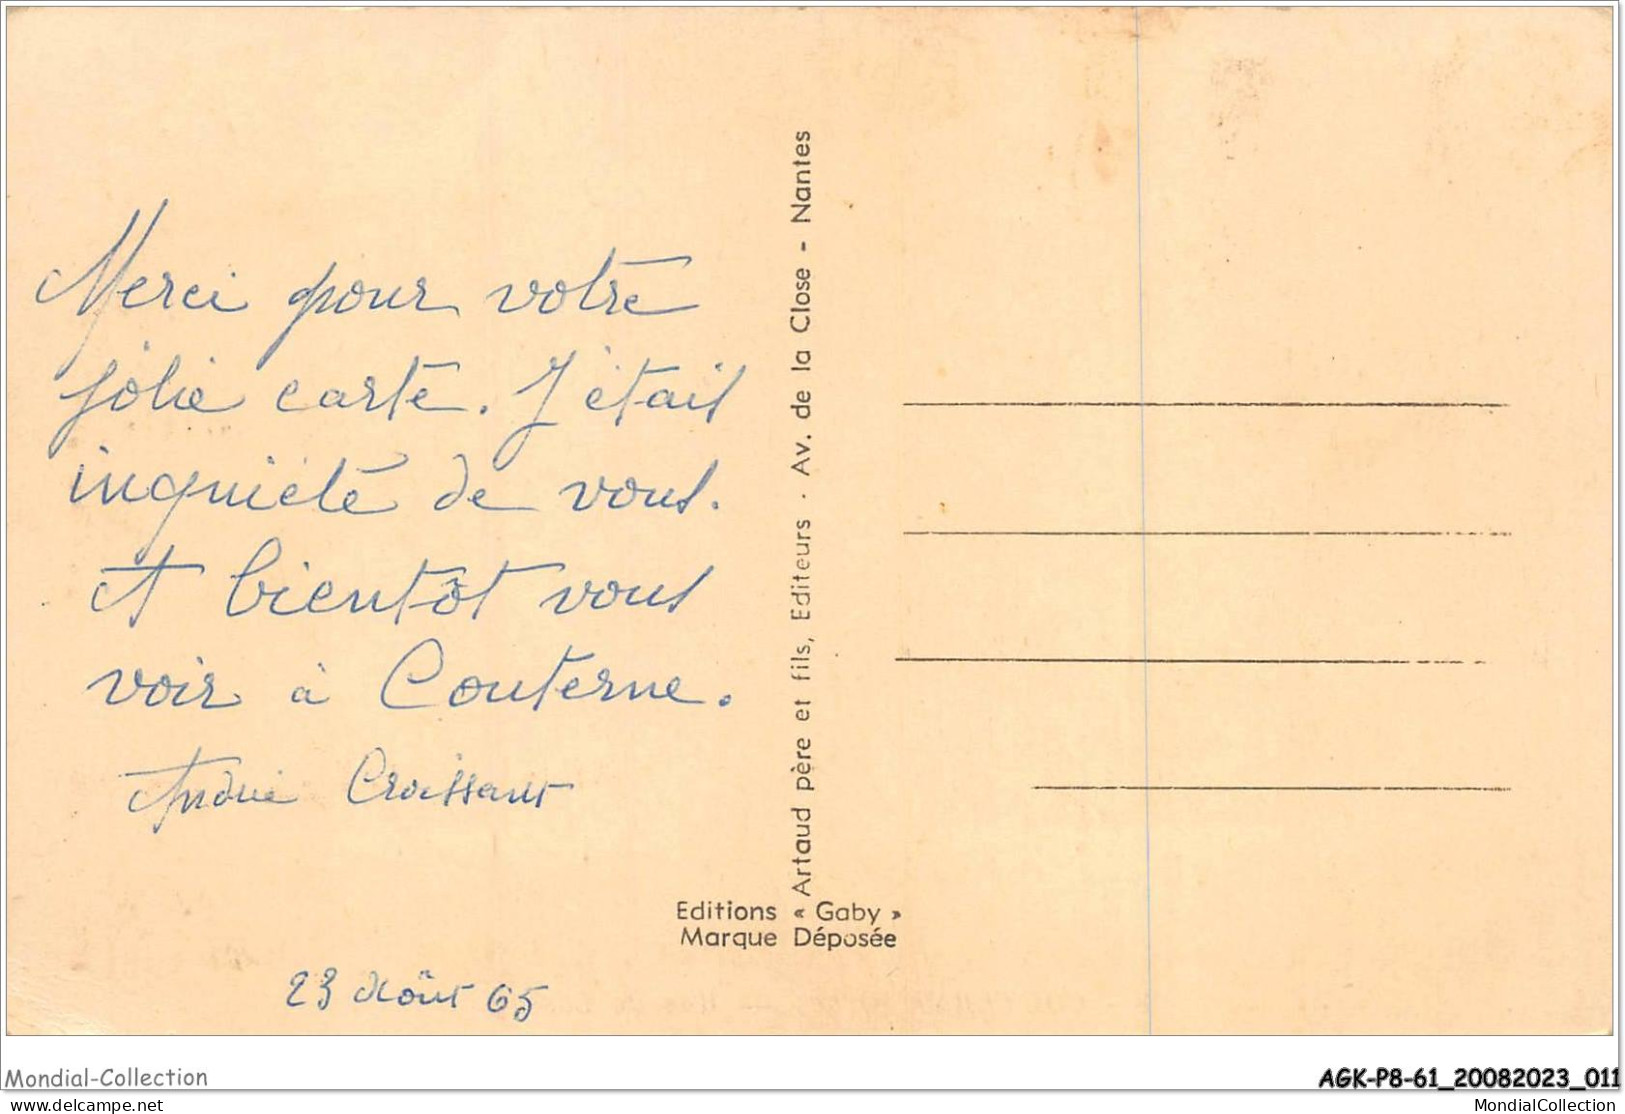 Merci pour votre
jolie carte. J'étais
inquiète de vous.
A bientôt vous
voir à Couterne.
Andrée Croissant
23 Août 65
Artaud père et fils, Editeurs · Av. de la Close - Nantes
Editions « Gaby »
Marque Déposée
Mondial-Collection
AGK-P8-61_20082023_011
delcampe.net
MondialCollection